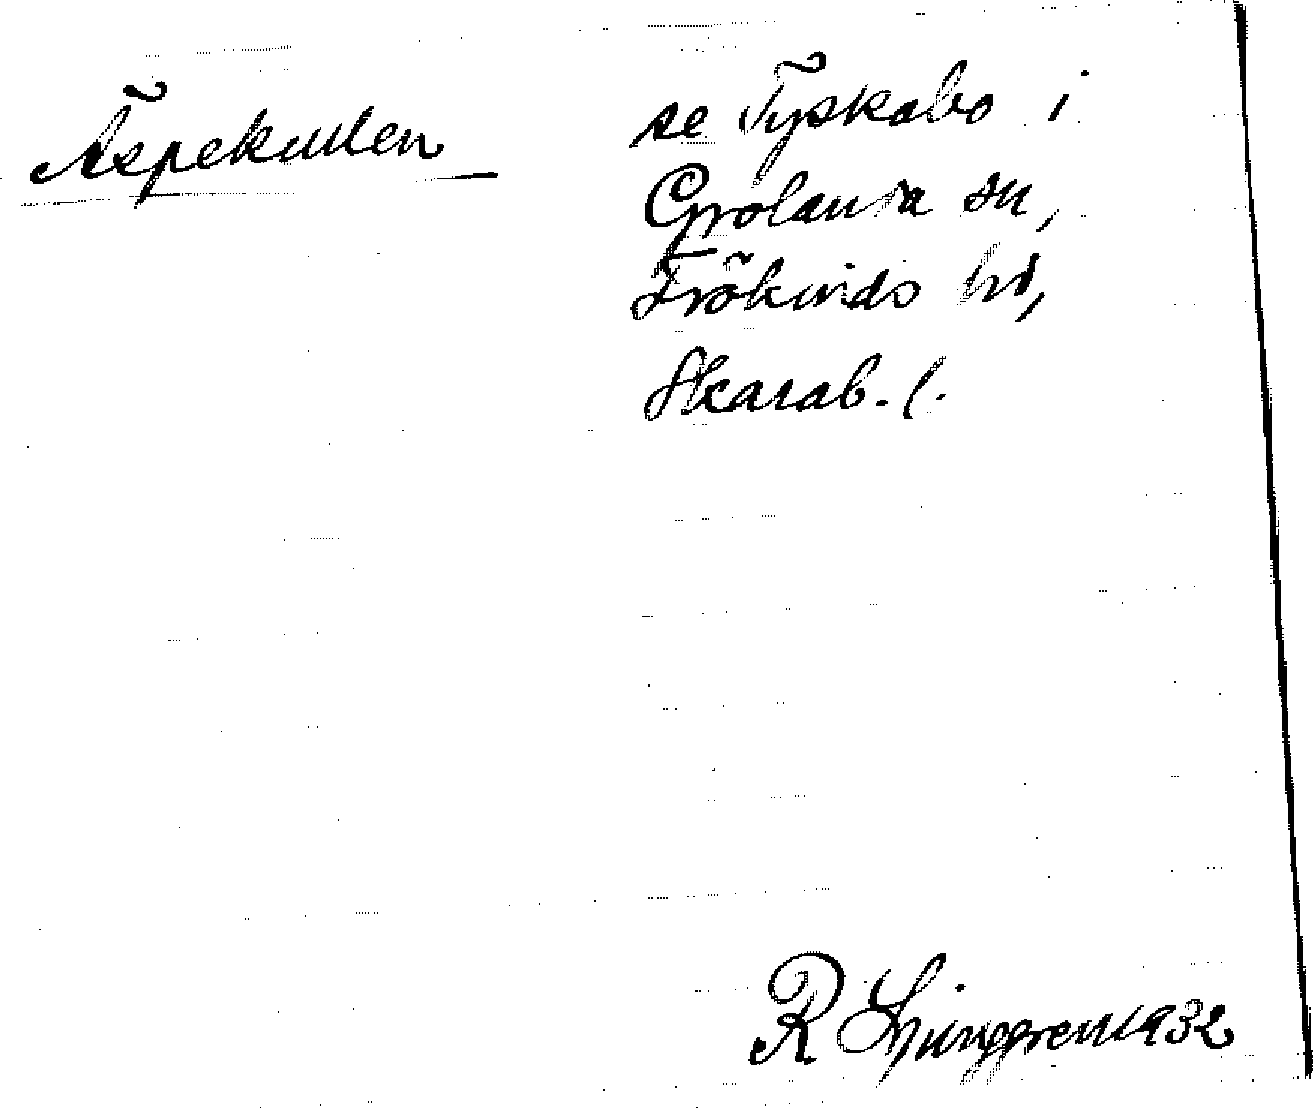 Äspekullen
se Tyskabo i
Grolanda sn,
Frökinds hd,
Skarab. l.
R Ljunggren 1932